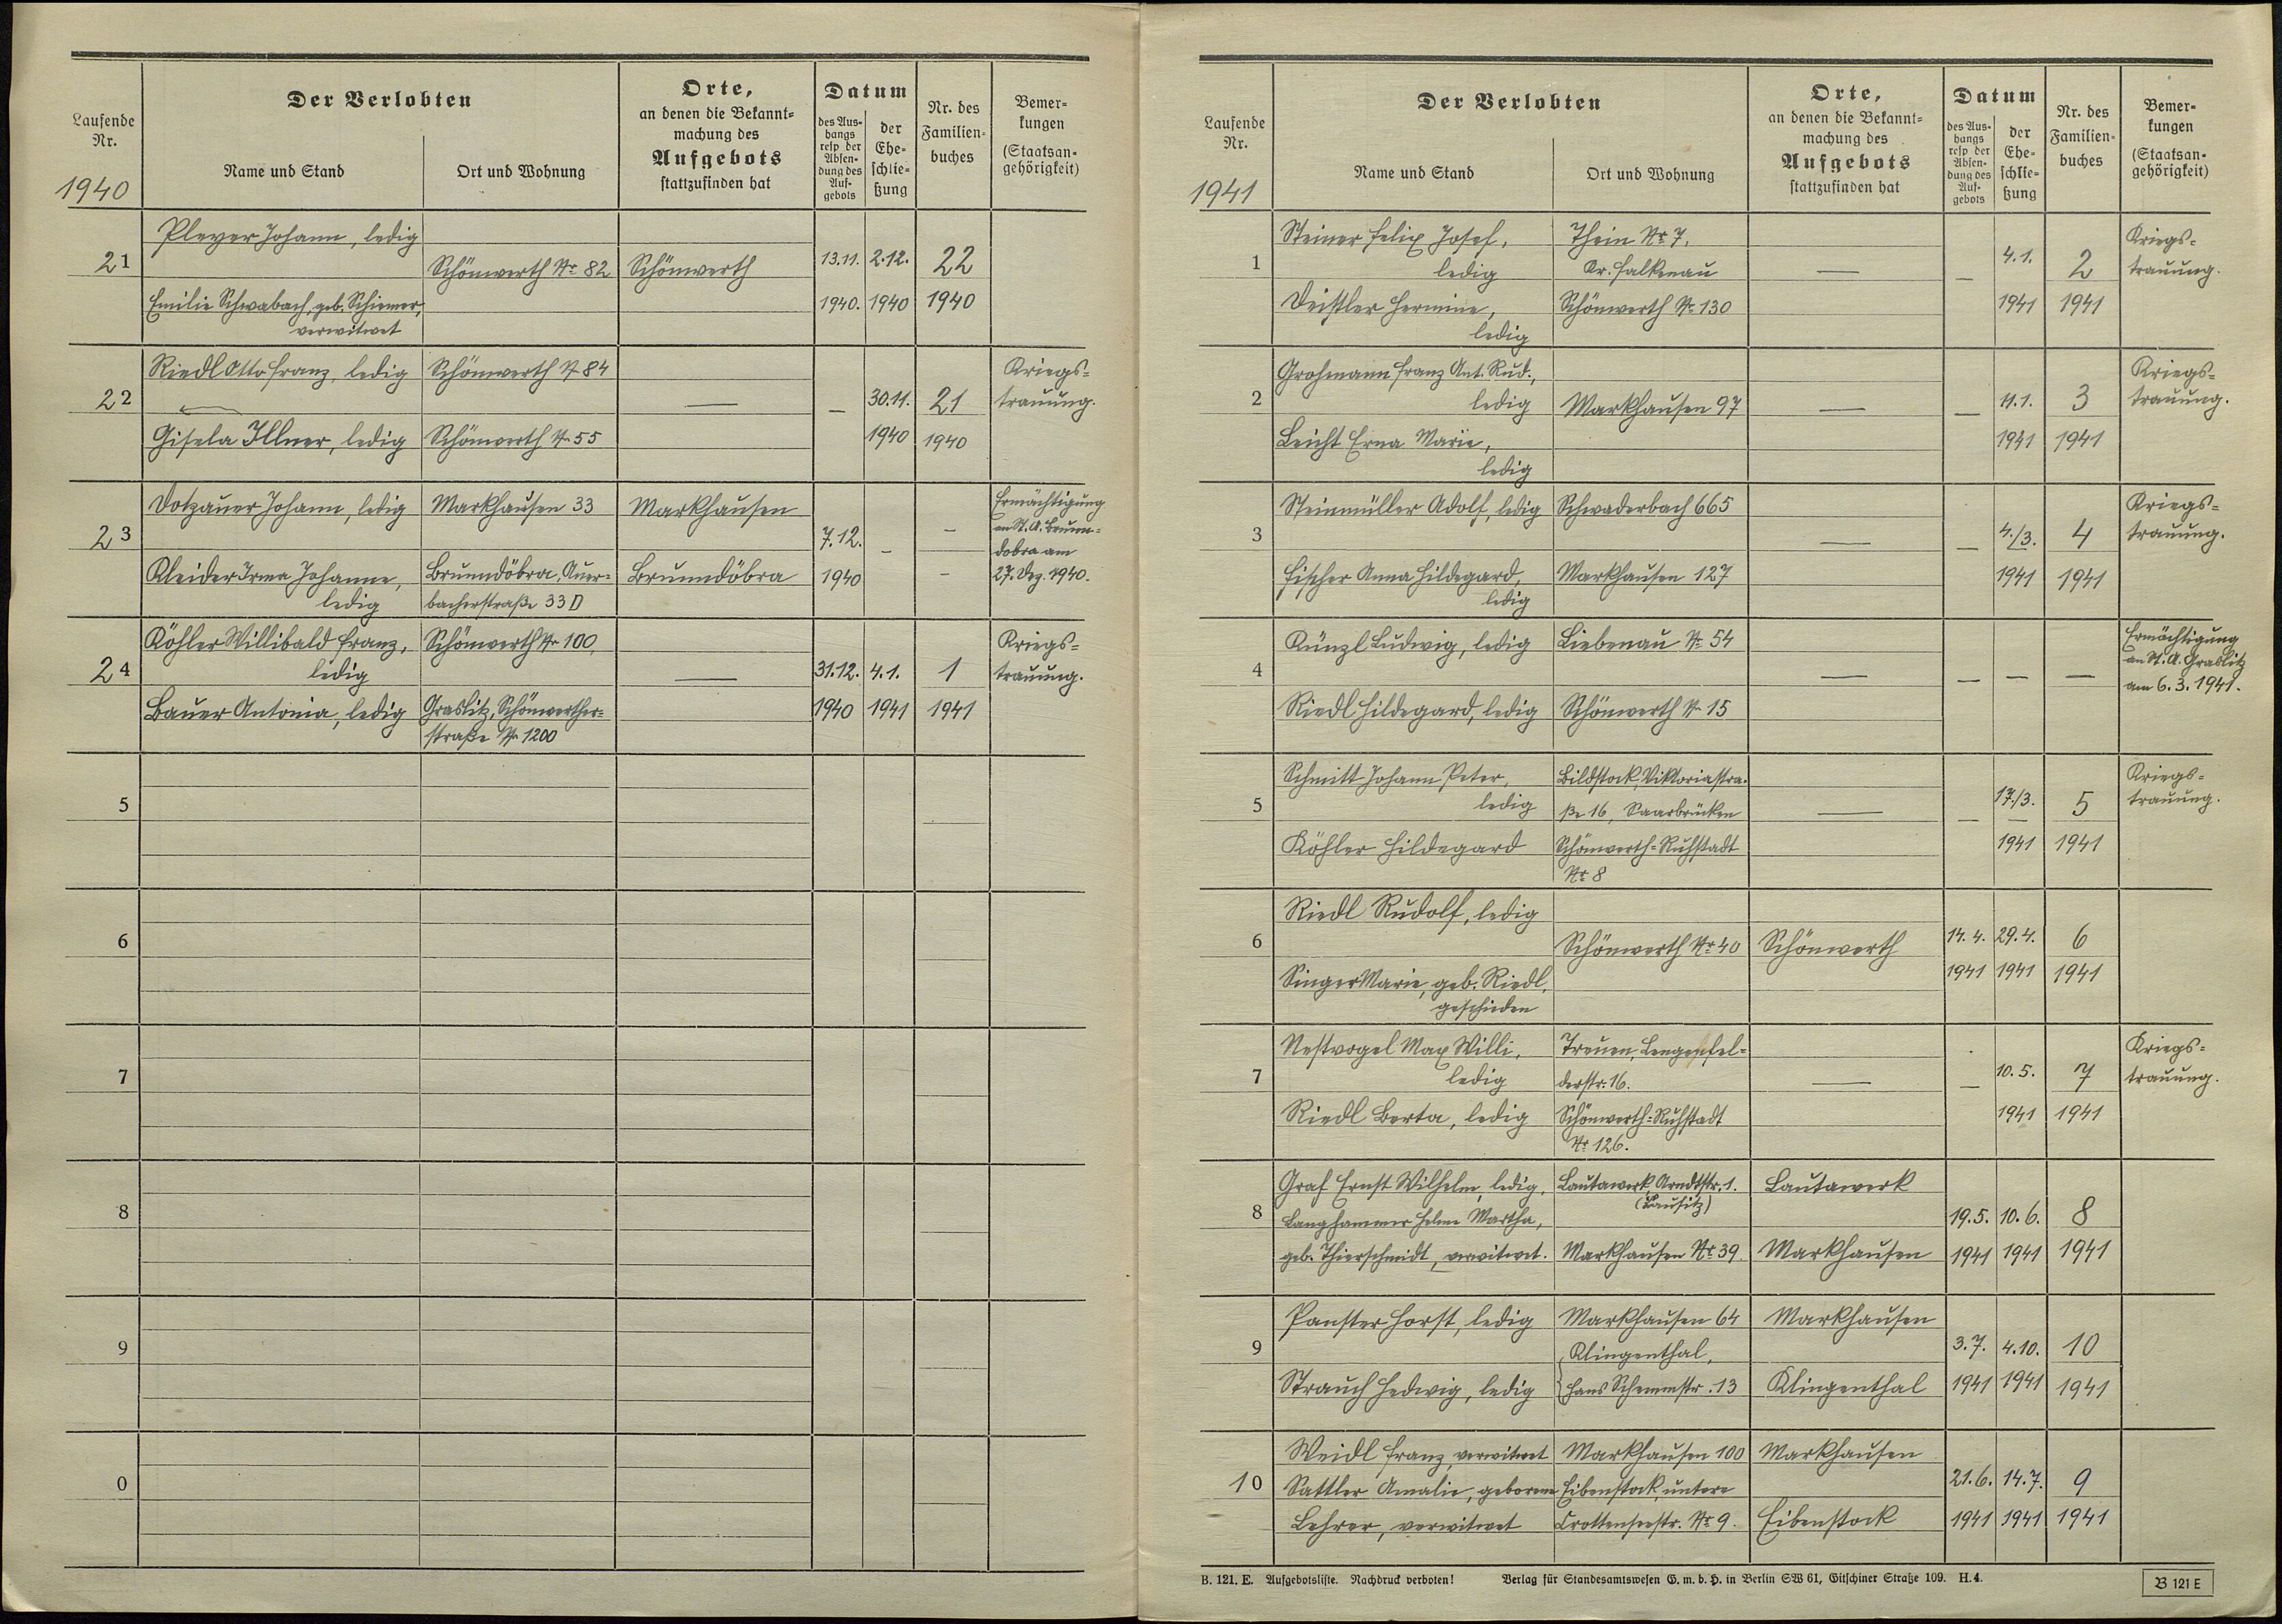 Laufende Nr.
1940
Der Verlobten
Name und Stand
Ort und Wohnung
Orte,
an denen die Bekannt=
machung des
Aufgebots
stattzufinden hat
Datum
des Aus-
hangs
resp der
Absen-
dung des
Auf-
gebots
der
Ehe-
schlie-
ßung
Nr. des
Familien-
buches
Bemer-
kungen
(Staatsan-
gehörigkeit)
21
Pleyer Johann, ledig
Schönwerth Nr 82
Schönwerth
13.11. 2.12. 22
Emilie Schwabach, geb. Schiemer,
verwitwet
1940. 1940 1940
22
Riedl Otto Franz, ledig
Schönwerth Nr 84
—
—
30.11. 21
Kriegs=
trauung.
Gisela Illner, ledig
Schönwerth Nr 55
1940 1940
23
Dotzauer Johann, ledig
Markhausen 33
Markhausen
7.12. — —
Ermächtigung
an St. A. Brunn=
dobra am
27. Dez. 1940.
Kleider Irma Johanne,
ledig
Brunndöbra, Auer=
bacherstraße 33 D
Brunndöbra
1940 —
24
Köhler Willibald Franz,
ledig
Schönwerth Nr 100,
—
31.12. 4.1. 1
Kriegs=
trauung.
Bauer Antonia, ledig
Graslitz, Schönwerther=
straße Nr 1200
1940 1941 1941
5
6
7
8
9
0
Laufende Nr.
1941
Der Verlobten
Name und Stand
Ort und Wohnung
Orte,
an denen die Bekannt=
machung des
Aufgebots
stattzufinden hat
Datum
des Aus-
hangs
resp der
Absen-
dung des
Auf-
gebots
der
Ehe-
schlie-
ßung
Nr. des
Familien-
buches
Bemer-
kungen
(Staatsan-
gehörigkeit)
1
Steiner Felix Josef,
ledig
Thein Nr 7.
Kr. Falkenau
—
— 4.1. 2
Kriegs=
trauung.
Deistler Hermine,
ledig
Schönwerth Nr 130
1941 1941
2
Grohmann Franz Ant. Rud.,
ledig
Markhausen 97
—
— 11.1. 3
Kriegs=
trauung.
Leicht Erna Marie,
ledig
1941 1941
3
Steinmüller Adolf, ledig
Schwaderbach 665
—
— 4./3. 4
Kriegs=
trauung.
Fischer Anna Hildegard,
ledig
Markhausen 127
1941 1941
4
Künzl Ludwig, ledig
Liebenau Nr 54
—
— — —
Ermächtigung
an St. A. Graslitz
am 6.3.1941.
Riedl Hildegard, ledig
Schönwerth Nr 15
5
Schmitt Johann Peter,
ledig
Bildstock, Viktoriastra-
ße 16, Saarbrücken
—
— 17./3. 5
Kriegs=
trauung.
Köhler Hildegard
Schönwerth=Ruhstadt
Nr 8
1941 1941
6
Riedl Rudolf, ledig
Schönwerth Nr 40
Schönwerth
14.4. 29.4. 6
Singer Marie, geb. Riedl,
geschieden
1941 1941 1941
7
Nestvogel Max Willi,
ledig
Treuen, Lengenfel=
derstr. 16.
—
— 10.5. 7
Kriegs=
trauung.
Riedl Berta, ledig
Schönwerth=Ruhstadt
Nr 126.
1941 1941
8
Graf Ernst Wilhelm, ledig,
Lautawerk Arndtstr. 1.
(Lausitz)
Lautawerk
19.5. 10.6. 8
Langhammer Helene Martha,
geb. Thierschmidt, verwitwet.
Markhausen Nr 39.
Markhausen
1941 1941 1941
9
Panster Horst, ledig
Markhausen 64
Markhausen
3.7. 4.10. 10
Strauch Hedwig, ledig
Klingenthal,
Hans Schemmstr. 13
Klingenthal
1941 1941 1941
10
Weidl Franz, verwitwet
Markhausen 100
Markhausen
21.6. 14.7. 9
Sattler Amalie, geborene
Lehrer, verwitwet
Eibenstock, untere
Crottenseestr. Nr 9.
Eibenstock
1941 1941 1941
B. 121. E. Aufgebotsliste. Nachdruck verboten! Verlag für Standesamtswesen G. m. b. H. in Berlin SW 61, Gitschiner Straße 109. H. 4.
B 121 E